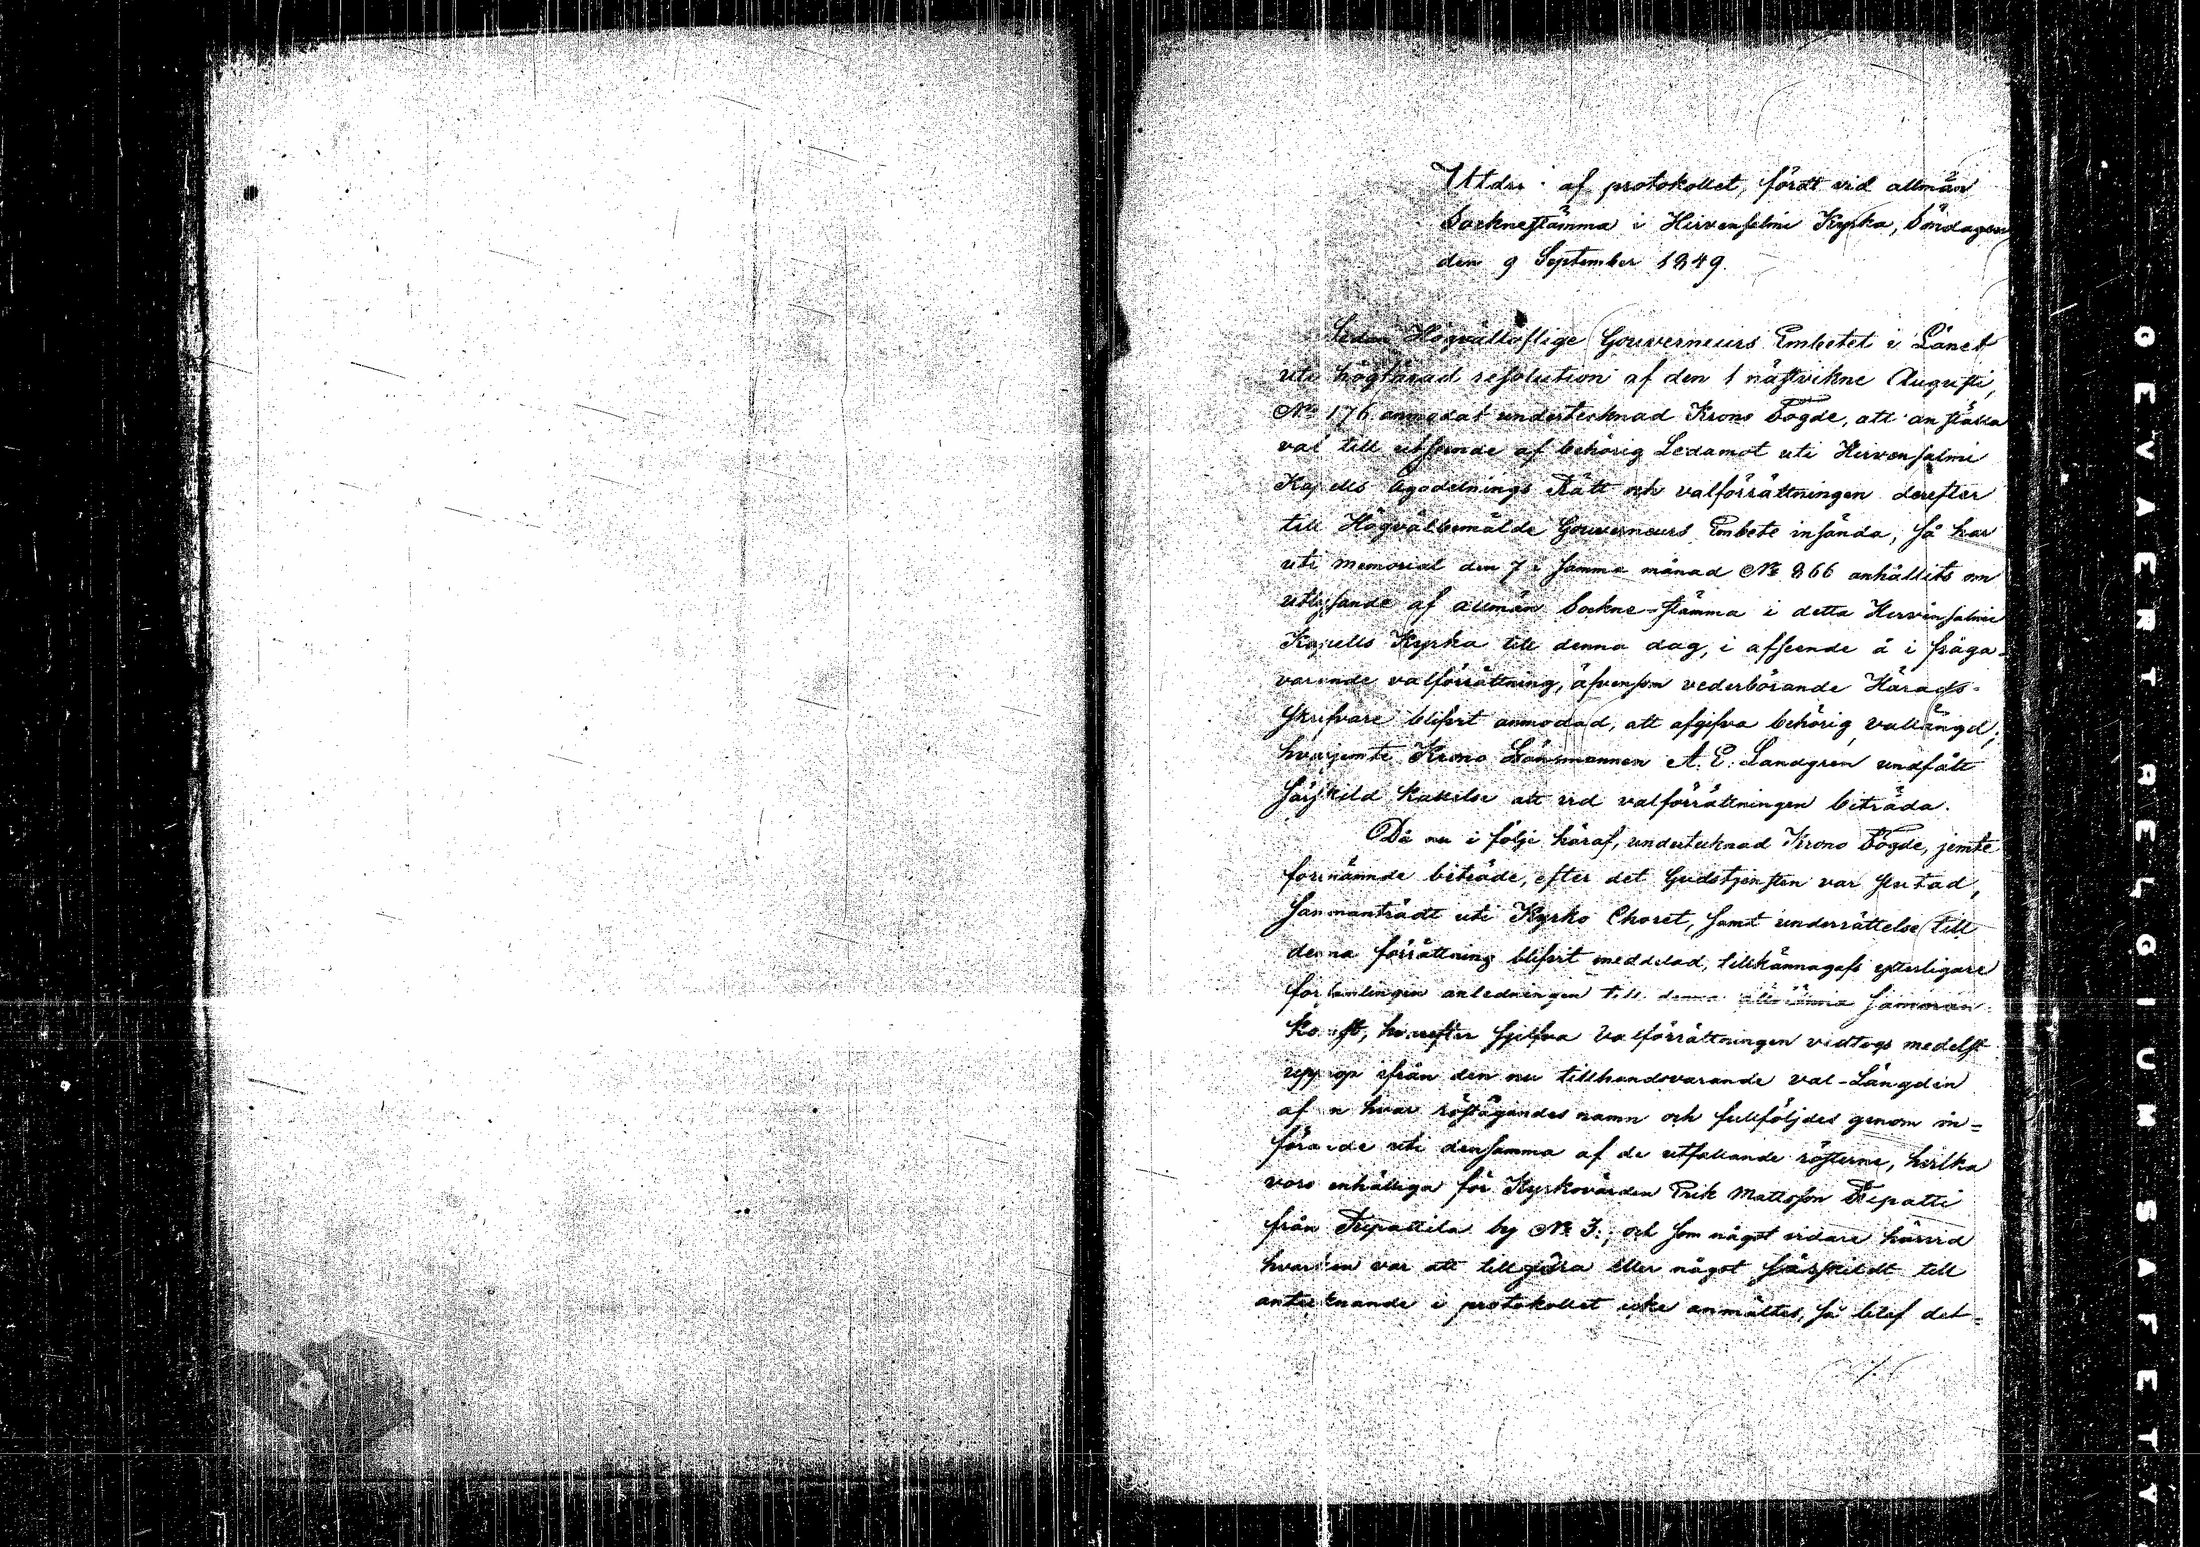 Utdra af protokollet, fördt vid allmän
Socknestämma i Hirvensalmi Kyrka, Söndagen
den 9 September 1849.
Sedan Högvälloflige Gouverneurs Embetet i Länet
uti höglärad resolution af den 1 nästvikne Augusti,
No 176 anmodat undertecknad Krono Fogde, att anställa
val till utseende af behörig Ledamot uti Hirvensalmi
Kapells Ägodelnings Rätt och valförrättningen derefter
till Högvälbemälde Gouverneurs Embete insända, så har
uti memorial den 7 i samma månad No 866 anhållits om
utlysande af allmän Sockne-stämma i detta Hirvensalmi
Kapells Kyrka till denna dag, i afseende å i fråga-
varande valförrättning, äfvensom vederbörande Härads-
skrifvare blifvit anmodad, att afgifva behörig vallängd;
hvarjemte Krono Länsmannen A. E. Landgren undfått
särskild kallelse att vid valförrättningen biträda.
Då nu i följe häraf, undertecknad Krono Fogde, jemte
förenämnde biträde, efter det Gudstjensten var slutad,
sammanträdt uti Kyrko Choret, samt underrättelse till
denna förrättning blifvit meddelad, tillkännagafs ytterligare
församlingen anledningen till denna allmänna samman
komst, hvarefter sjelfva valförrättningen vidtogs medelst
upprop ifrån den nu tillhandavarande val-Längden
af en hvar röstägandes namn och fullföljdes genom in=
förande uti densamma af de utfallande rösterne, hvilka
voro enhälliga för Kyrkovärden Erik Mattsson Ripatti
från Ripattila by No 3.; och som något vidare härvid
hvarken var att tillgöra eller något särskildt till
antecknande i protokollet icke anmältes, så blef det=
GEVAERT RELGIUM SAFETY